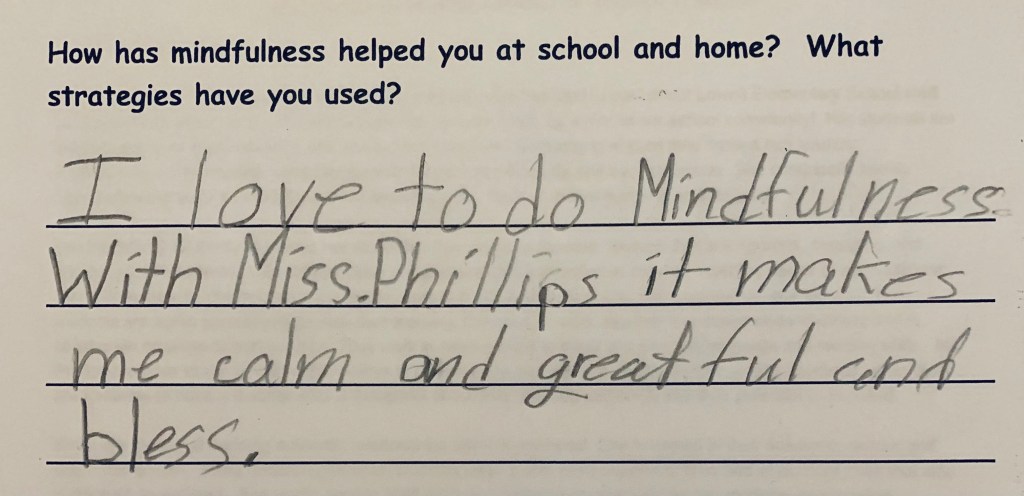 How has mindfulness helped you at school and home?  What
strategies have you used?
I love to do Mindfulness
With Miss.Phillips it makes
me calm and greatful and
bless.